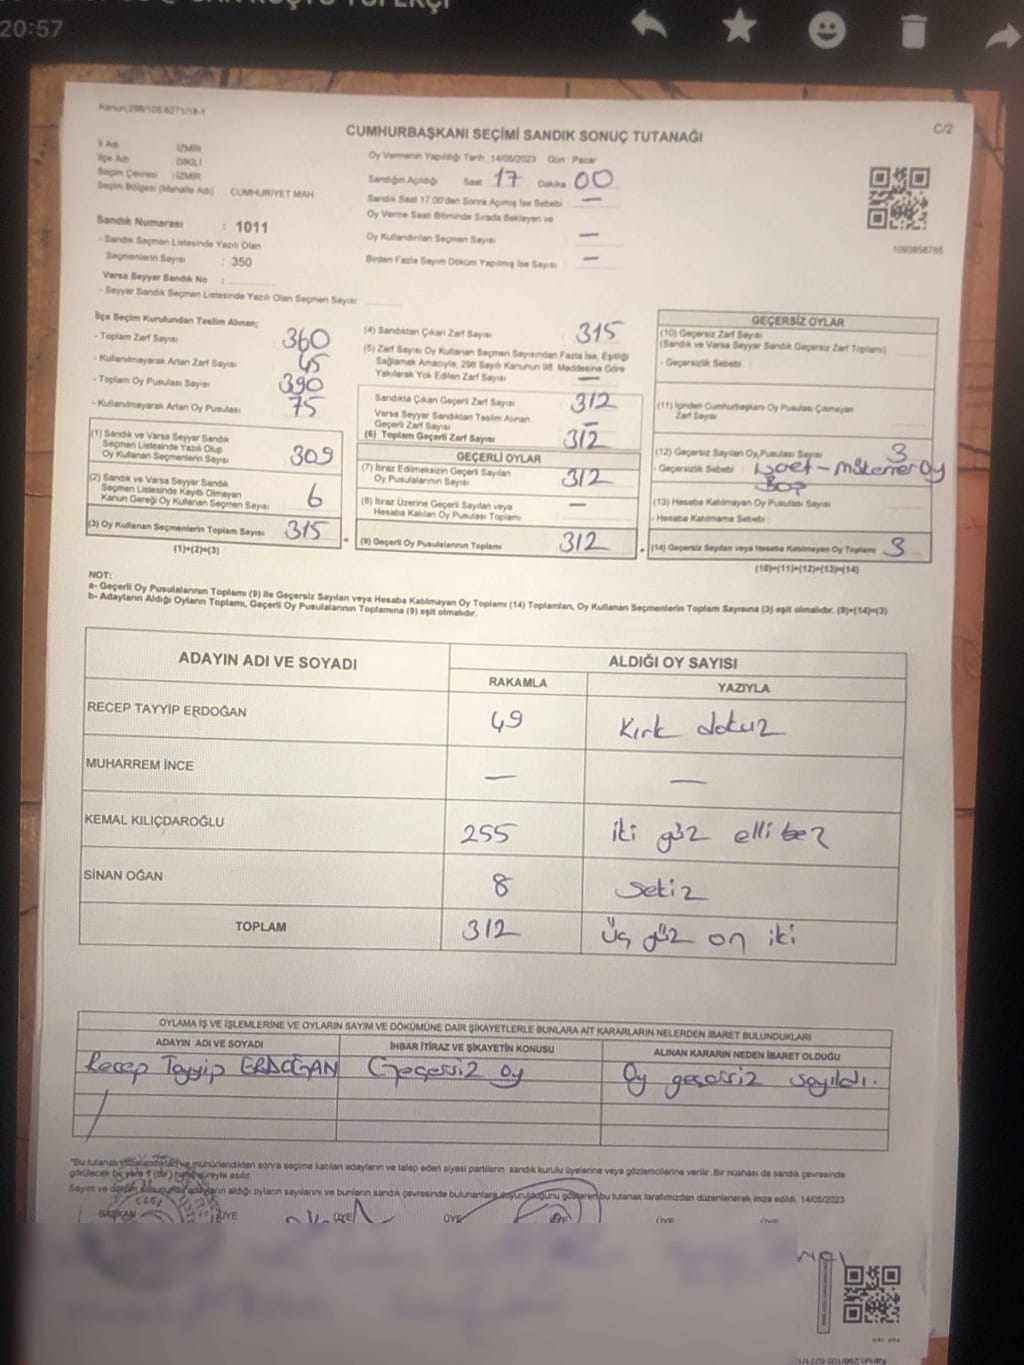 20:57
Kanun:298/105.6271/18-1
C/2
CUMHURBAŞKANI SEÇİMİ SANDIK SONUÇ TUTANAĞI
İl Adı : İZMİR
İlçe Adı : DİKİLİ
Seçim Çevresi : İZMİR
Seçim Bölgesi (Mahalle Adı) : CUMHURİYET MAH
Sandık Numarası : 1011
- Sandık Seçmen Listesinde Yazılı Olan
Seçmenlerin Sayısı : 350
Varsa Seyyar Sandık No :
- Seyyar Sandık Seçmen Listesinde Yazılı Olan Seçmen Sayısı:
Oy Vermenin Yapıldığı Tarih: 14/05/2023 Gün : Pazar
Sandığın Açıldığı Saat : 17 Dakika : 00
Sandık Saat 17:00'den Sonra Açılmış İse Sebebi : —
Oy Verme Saati Bitiminde Sırada Bekleyen ve
Oy Kullandırılan Seçmen Sayısı : —
Birden Fazla Sayım Döküm Yapılmış İse Sayısı : —
1093858785
İlçe Seçim Kurulundan Teslim Alınan;
- Toplam Zarf Sayısı : 360
- Kullanılmayarak Artan Zarf Sayısı : 45
- Toplam Oy Pusulası Sayısı : 390
- Kullanılmayarak Artan Oy Pusulası : 75
(1) Sandık ve Varsa Seyyar Sandık
Seçmen Listesinde Yazılı Olup
Oy Kullanan Seçmenlerin Sayısı 309
(2) Sandık ve Varsa Seyyar Sandık
Seçmen Listesinde Kayıtlı Olmayan
Kanun Gereği Oy Kullanan Seçmen Sayısı : 6
(3) Oy Kullanan Seçmenlerin Toplam Sayısı : 315
(1)+(2)=(3)
(4) Sandıktan Çıkan Zarf Sayısı 315
(5) Zarf Sayısı Oy Kullanan Seçmen Sayısından Fazla İse, Eşitliği
Sağlamak Amacıyla, 298 Sayılı Kanunun 98. Maddesine Göre
Yakılarak Yok Edilen Zarf Sayısı : —
Sandıkta Çıkan Geçerli Zarf Sayısı : 312
Varsa Seyyar Sandıktan Teslim Alınan
Geçerli Zarf Sayısı : —
(6) Toplam Geçerli Zarf Sayısı 312
GEÇERLİ OYLAR
(7) İtiraz Edilmeksizin Geçerli Sayılan
Oy Pusulalarının Sayısı : 312
(8) İtiraz Üzerine Geçerli Sayılan veya
Hesaba Katılan Oy Pusulası Toplamı : —
(9) Geçerli Oy Pusulalarının Toplamı : 312
GEÇERSİZ OYLAR
(10) Geçersiz Zarf Sayısı
(Sandık ve Varsa Seyyar Sandık Geçersiz Zarf Toplamı)
- Geçersizlik Sebebi :
(11) İçinden Cumhurbaşkanı Oy Pusulası Çıkmayan
Zarf Sayısı :
(12) Geçersiz Sayılan Oy Pusulası Sayısı : 3
- Geçersizlik Sebebi : - Oy
(13) Hesaba Katılmayan Oy Pusulası Sayısı :
- Hesaba Katılmama Sebebi :
(14) Geçersiz Sayılan veya Hesaba Katılmayan Oy Toplamı 3
(10)+(11)+(12)+(13)=(14)
NOT:
a- Geçerli Oy Pusulalarının Toplamı (9) ile Geçersiz Sayılan veya Hesaba Katılmayan Oy Toplamı (14) Toplamları, Oy Kullanan Seçmenlerin Toplam Sayısına (3) eşit olmalıdır. (9)+(14)=(3)
b- Adayların Aldığı Oyların Toplamı, Geçerli Oy Pusulalarının Toplamına (9) eşit olmalıdır.
ADAYIN ADI VE SOYADI ALDIĞI OY SAYISI
RAKAMLA YAZIYLA
RECEP TAYYİP ERDOĞAN 49 Kırk dokuz
MUHARREM İNCE — —
KEMAL KILIÇDAROĞLU 255 iki yüz elli beş
SİNAN OĞAN 8 Sekiz
TOPLAM 312 Üç yüz on iki
OYLAMA İŞ VE İŞLEMLERİNE VE OYLARIN SAYIM VE DÖKÜMÜNE DAİR ŞİKAYETLERLE BUNLARA AİT KARARLARIN NELERDEN İBARET BULUNDUKLARI
ADAYIN ADI VE SOYADI İHBAR İTİRAZ VE ŞİKAYETİN KONUSU ALINAN KARARIN NEDEN İBARET OLDUĞU
Recep Tayyip ERDOĞAN Geçersiz oy Oy geçersiz sayıldı.
görülecek bir yere 1 (bir) hafta süreyle asılır.
Sayım ve döküm sonucunda adayların aldığı oyların sayılarını ve bunların sandık çevresinde bulunanlara duyurulduğunu gösteren bu tutanak tarafımızdan düzenlenerek imza edildi. 14/05/2023
BAŞKAN ÜYE ÜYE ÜYE ÜYE ÜYE ÜYE